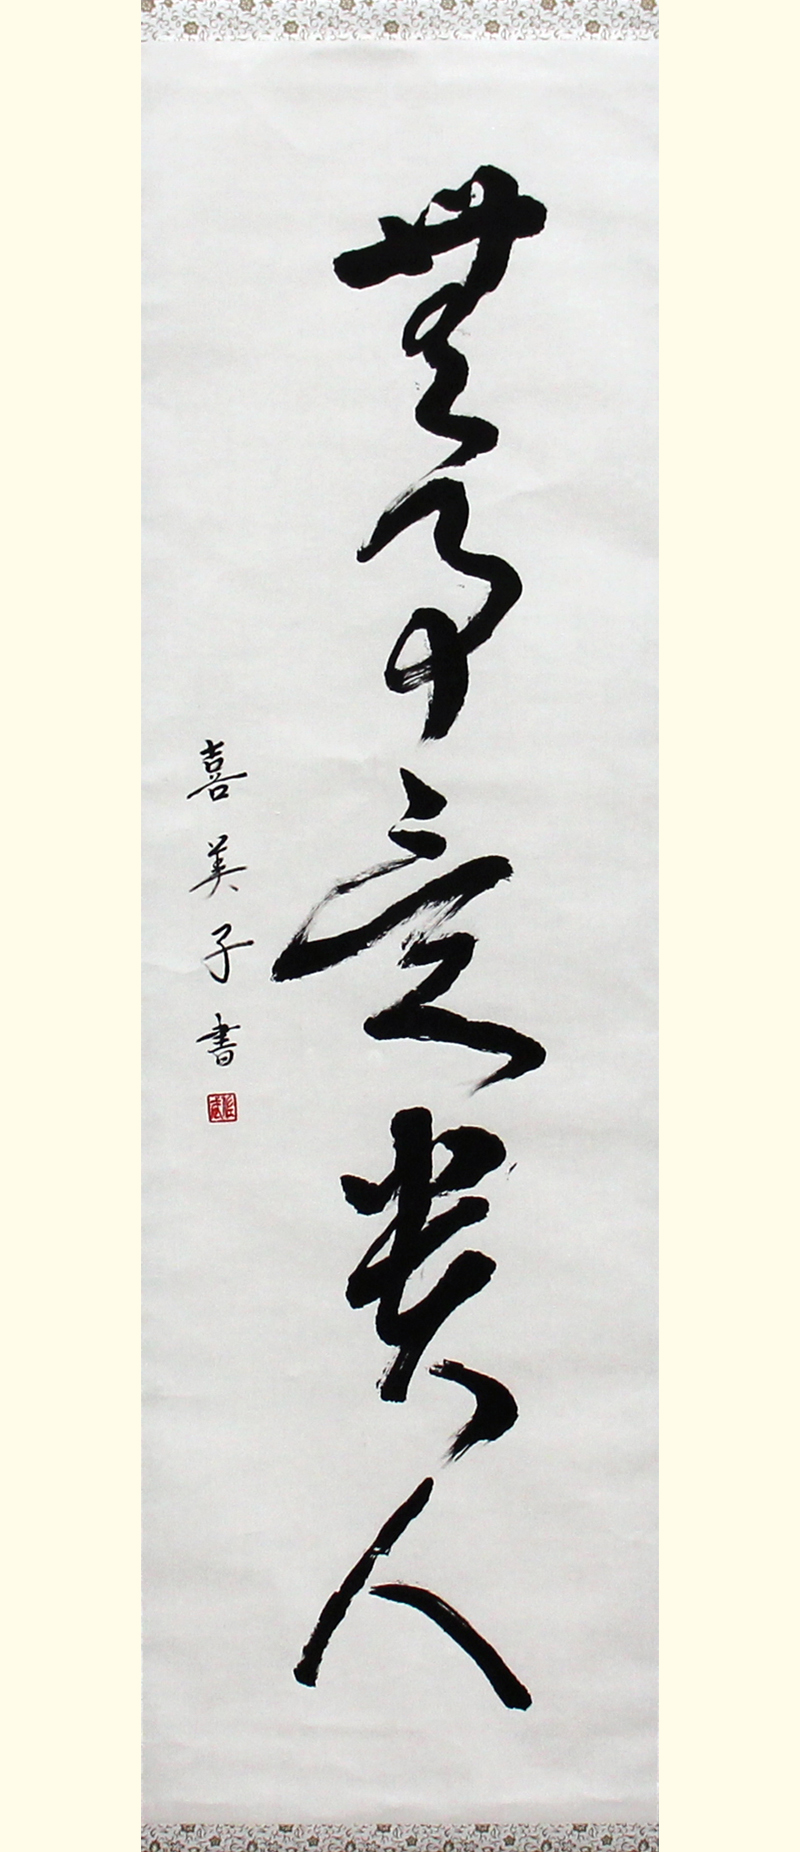 無事是貴人
喜美子書